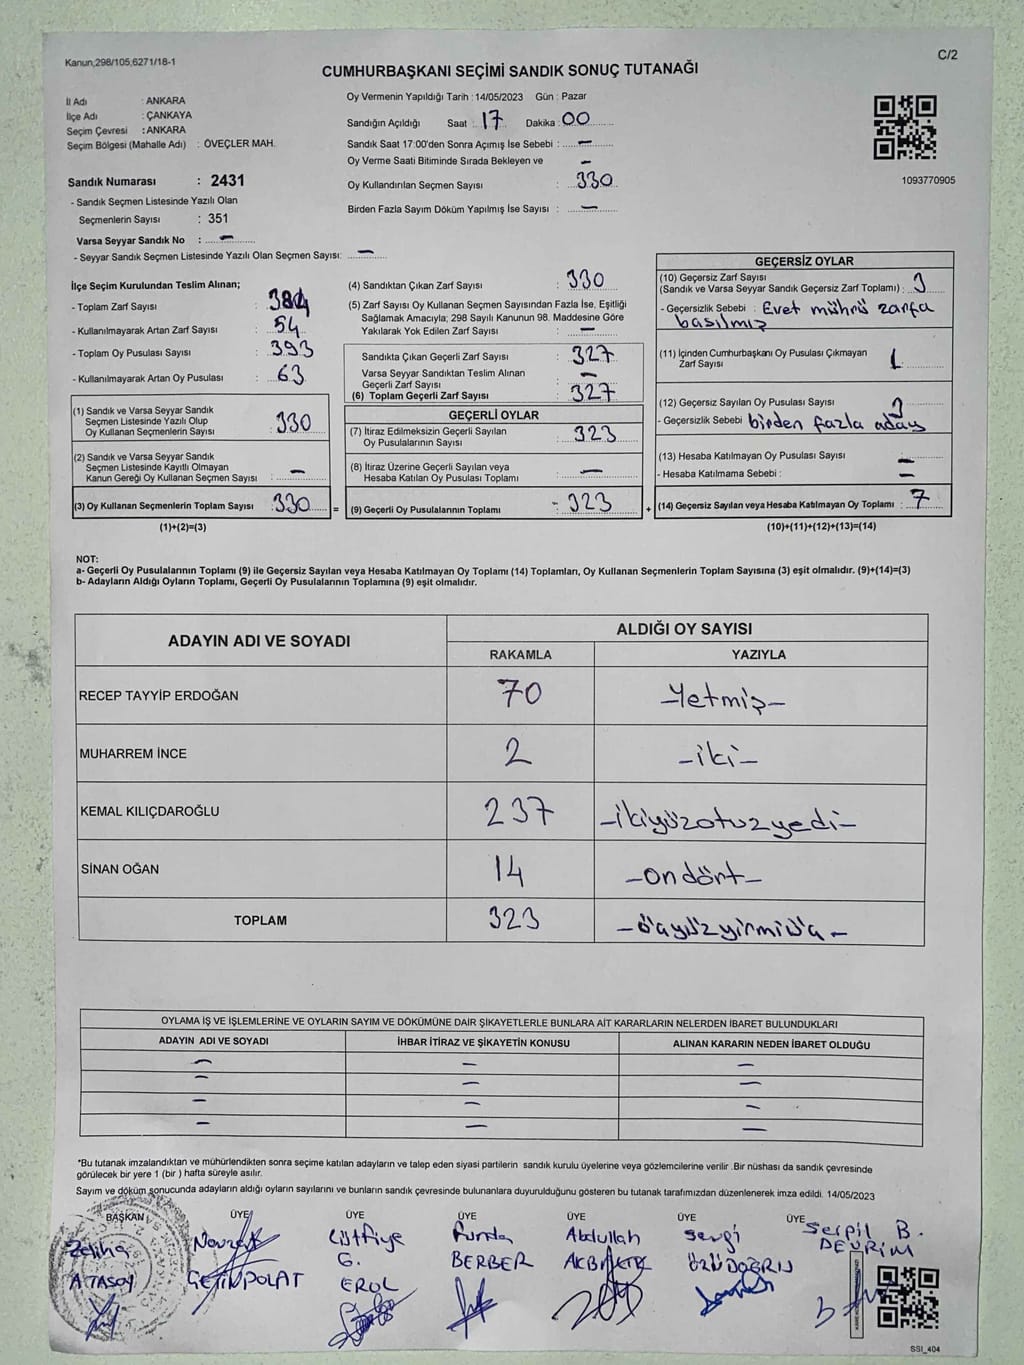 Kanun,298/105,6271/18-1
C/2
CUMHURBAŞKANI SEÇİMİ SANDIK SONUÇ TUTANAĞI
İl Adı : ANKARA
İlçe Adı : ÇANKAYA
Seçim Çevresi : ANKARA
Seçim Bölgesi (Mahalle Adı) : ÖVEÇLER MAH.
Sandık Numarası : 2431
- Sandık Seçmen Listesinde Yazılı Olan
Seçmenlerin Sayısı : 351
Varsa Seyyar Sandık No : –
- Seyyar Sandık Seçmen Listesinde Yazılı Olan Seçmen Sayısı: –
Oy Vermenin Yapıldığı Tarih : 14/05/2023 Gün : Pazar
Sandığın Açıldığı Saat : 17 Dakika : 00
Sandık Saat 17:00'den Sonra Açımış İse Sebebi : –
Oy Verme Saati Bitiminde Sırada Bekleyen ve –
Oy Kullandırılan Seçmen Sayısı : 330
Birden Fazla Sayım Döküm Yapılmış İse Sayısı : –
1093770905
İlçe Seçim Kurulundan Teslim Alınan;
- Toplam Zarf Sayısı : 384
- Kullanılmayarak Artan Zarf Sayısı : 54
- Toplam Oy Pusulası Sayısı : 393
- Kullanılmayarak Artan Oy Pusulası : 63
(1) Sandık ve Varsa Seyyar Sandık
Seçmen Listesinde Yazılı Olup
Oy Kullanan Seçmenlerin Sayısı : 330
(2) Sandık ve Varsa Seyyar Sandık
Seçmen Listesinde Kayıtlı Olmayan
Kanun Gereği Oy Kullanan Seçmen Sayısı : –
(3) Oy Kullanan Seçmenlerin Toplam Sayısı : 330 =
(1)+(2)=(3)
(4) Sandıktan Çıkan Zarf Sayısı : 330
(5) Zarf Sayısı Oy Kullanan Seçmen Sayısından Fazla İse, Eşitliği
Sağlamak Amacıyla; 298 Sayılı Kanunun 98. Maddesine Göre
Yakılarak Yok Edilen Zarf Sayısı : –
Sandıkta Çıkan Geçerli Zarf Sayısı : 327
Varsa Seyyar Sandıktan Teslim Alınan
Geçerli Zarf Sayısı : –
(6) Toplam Geçerli Zarf Sayısı : 327
GEÇERLİ OYLAR
(7) İtiraz Edilmeksizin Geçerli Sayılan
Oy Pusulalarının Sayısı : 323
(8) İtiraz Üzerine Geçerli Sayılan veya
Hesaba Katılan Oy Pusulası Toplamı : –
(9) Geçerli Oy Pusulalarının Toplamı : 323 +
GEÇERSİZ OYLAR
(10) Geçersiz Zarf Sayısı
(Sandık ve Varsa Seyyar Sandık Geçersiz Zarf Toplamı) : 3
- Geçersizlik Sebebi : Evet mührü zarfa
basılmış
(11) İçinden Cumhurbaşkanı Oy Pusulası Çıkmayan
Zarf Sayısı : 1
(12) Geçersiz Sayılan Oy Pusulası Sayısı : 3
- Geçersizlik Sebebi : birden fazla aday
(13) Hesaba Katılmayan Oy Pusulası Sayısı : –
- Hesaba Katılmama Sebebi : –
(14) Geçersiz Sayılan veya Hesaba Katılmayan Oy Toplamı : 7
(10)+(11)+(12)+(13)=(14)
NOT:
a- Geçerli Oy Pusulalarının Toplamı (9) ile Geçersiz Sayılan veya Hesaba Katılmayan Oy Toplamı (14) Toplamları, Oy Kullanan Seçmenlerin Toplam Sayısına (3) eşit olmalıdır. (9)+(14)=(3)
b- Adayların Aldığı Oyların Toplamı, Geçerli Oy Pusulalarının Toplamına (9) eşit olmalıdır.
ADAYIN ADI VE SOYADI ALDIĞI OY SAYISI
RAKAMLA YAZIYLA
RECEP TAYYİP ERDOĞAN 70 –Yetmiş–
MUHARREM İNCE 2 –iki–
KEMAL KILIÇDAROĞLU 237 –ikiyüzotuzyedi–
SİNAN OĞAN 14 –ondört–
TOPLAM 323 –üçyüzyirmiüç–
OYLAMA İŞ VE İŞLEMLERİNE VE OYLARIN SAYIM VE DÖKÜMÜNE DAİR ŞİKAYETLERLE BUNLARA AİT KARARLARIN NELERDEN İBARET BULUNDUKLARI
ADAYIN ADI VE SOYADI İHBAR İTİRAZ VE ŞİKAYETİN KONUSU ALINAN KARARIN NEDEN İBARET OLDUĞU
– – –
– – –
– – –
– – –
*Bu tutanak imzalandıktan ve mühürlendikten sonra seçime katılan adayların ve talep eden siyasi partilerin sandık kurulu üyelerine veya gözlemcilerine verilir .Bir nüshası da sandık çevresinde
görülecek bir yere 1 (bir ) hafta süreyle asılır.
Sayım ve döküm sonucunda adayların aldığı oyların sayılarını ve bunların sandık çevresinde bulunanlara duyurulduğunu gösteren bu tutanak tarafımızdan düzenlenerek imza edildi. 14/05/2023
BAŞKAN ÜYE ÜYE ÜYE ÜYE ÜYE ÜYE
Zeliha Lütfiye Funda Abdullah Sevgi Serpil B.
ATASOY G. BERBER DEVRİM
EROL
SSI_404